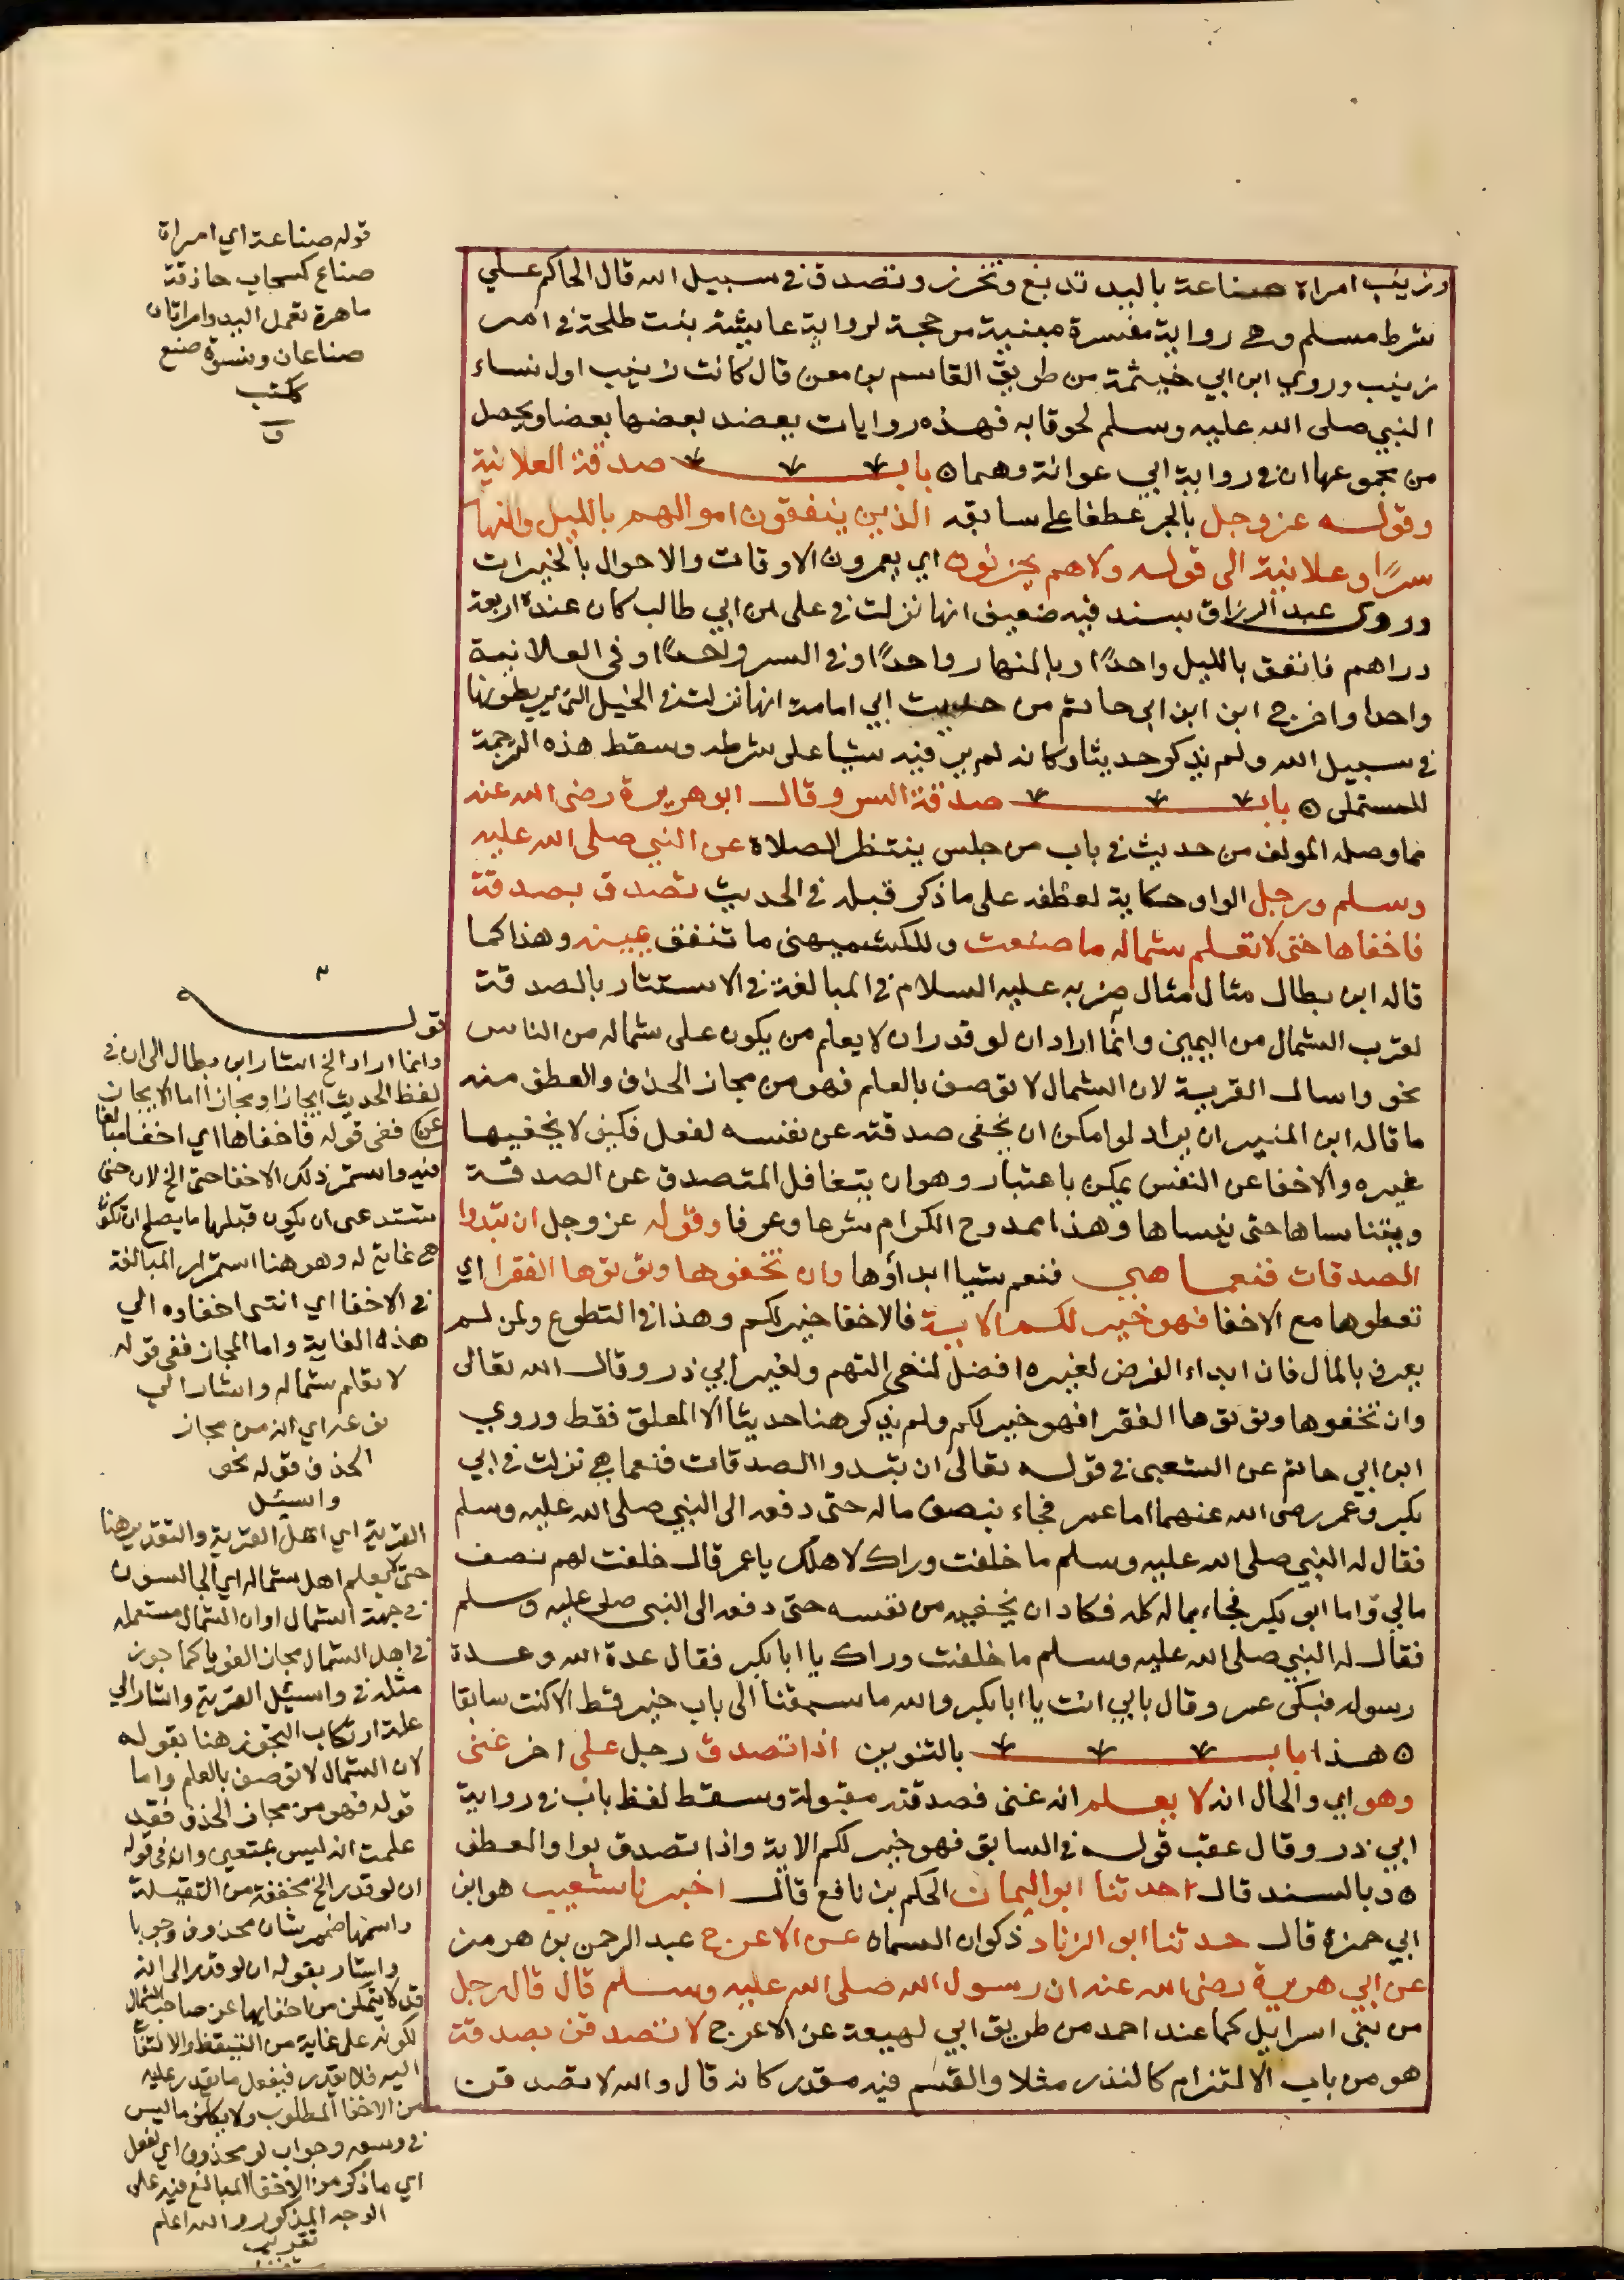 وزينب امراة صناعة باليد تدبغ وتخرز وتصدق في سبيل الله قال الحاكم علي
شرط مسلم وهي رواية مفسرة مبينة مرجحة لرواية عايشة بنت طلحة في امر
زينب وروي ابن ابي خيثمة من طريق القاسم بن معن قال كانت زينب اول نساء
النبي صلى الله عليه وسلم لحوقا به فهذه روايات يعضد بعضها بعضا ويحصل
من مجموعها ان في رواية ابي عوانة وهما ه باب صدقة العلانية
وقوله عز وجل بالجر عطفا على سابقه الذين ينفقون اموالهم بالليل والنهار
سرًا وعلانية الى قوله ولا هم يحزنون اي يعمرون الاوقات والاحوال بالخيرات
وروى عبد الرزاق بسند فيه ضعيف انها نزلت في على بن ابي طالب كان عنده اربعة
دراهم فانفق بالليل واحدًا وبالنهار واحدًا وفي السر واحدًا وفي العلانية
واحدا واخرج ابن ابن ابى حاتم من حديث ابي امامة انها نزلت في الخيل التي يربطونها
في سبيل الله ولم يذكر حديثا وكانه لم ير فيه شيا على شرطه وسقط هذه الترجمة
للمستملى ه باب صدقة السر وقال ابو هريرة رضى الله عنه
مما وصله المولف من حديث في باب من جلس ينتظر الصلاة عن النبي صلى الله عليه
وسلم ورجل الواو حكاية لعطفه على ما ذكر قبله في الحديث تصدق بصدقة
فاخفاها حتى لا تعلم شماله ما صنعت وللكشميهنى ما تنفق يمينه وهذا كما
قاله ابن بطال مثال مثال ضربه عليه السلام في المبالغة في الاستتار بالصدقة
لقرب الشمال من اليمين وانما اراد ان لو قدر ان لا يعلم من يكون على شماله من الناس
نحو واسال القرية لان الشمال لا توصف بالعلم فهو من مجاز الحذف والطف منه
ما قاله ابن المنير ان يراد لو امكن ان يخفى صدقته عن نفسه لفعل فكيف لا يخفيها
غيره والاخفا عن النفس يمكن باعتبار وهو ان يتغافل المتصدق عن الصدقة
ويتناساها حتى ينساها وهذا ممدوح الكرام شرعا وعرفا وقوله عز وجل ان تبدوا
الصدقات فنعما هي فنعم شيا ابداؤها وان تخفوها وتؤتوها الفقرا اي
تعطوها مع الاخفا فهو خير لكم الاية فالاخفا خير لكم وهذا في التطوع ولمن لم
يعرف بالمال فان ابداء الفرض لغيره افضل لنفى التهم ولغير ابي ذر وقال الله تعالى
وان تخفوها وتؤتوها الفقرا فهو خير لكم ولم يذكر هنا حديثا الا المعلق فقط وروي
ابن ابي حاتم عن الشعبى في قوله تعالى ان تبدوا الصدقات فنعما هي نزلت في ابي
بكر وعمر رضى الله عنهما اما عمر فجاء بنصف ماله حتى دفعه الى النبي صلى الله عليه وسلم
فقال له النبي صلى الله عليه وسلم ما خلفت وراك لاهلك يا عمر قال خلفت لهم نصف
مالي واما ابو بكر فجاء بماله كله فكاد ان يخفيه من نفسه حتى دفعه الى النبى صلى عليه وسلم
فقال له النبي صلى الله عليه وسلم ما خلفت وراك يا ابا بكر فقال عدة الله وعدة
رسوله فبكى عمر وقال بابي انت يا ابا بكر والله ما سبقنا الى باب خير قط الا كنت سابقا
ه هذا باب بالتنوين اذا تصدق رجل على اخر غنى
وهو اي والحال انه لا يعلم انه غنى فصدقته مقبولة وسقط لفظ باب في رواية
ابي ذر وقال عقب قوله في السابق فهو خير لكم الاية واذا تصدق بواو العطف
ه وبالسند قال احدثنا ابو اليمان الحكم بن نافع قال اخبرنا شعيب هو ابن
ابي حمزة قال حدثنا ابو الزناد ذكوان السماه عن الاعرج عبد الرحمن بن هرمز
عن ابي هريرة رضى الله عنه ان رسول الله صلى الله عليه وسلم قال قال رجل
من بنى اسرايل كما عند احمد من طريق ابي لهيعة عن الاعرج لا تصدقن بصدقة
هو من باب الالتزام كالنذر مثلا والقسم فيه مقدر كانه قال والله لا تصدقن
قوله صناعة اي امراة
صناع كسحاب حاذقة
ماهرة تعمل اليد وامراتان
صناعان ونسوة صنع
ككتب
ق
قوله
وانما اراد الخ اشار ابن بطال الى ان في
لفظ الحديث ايجازا ومجازا اما الايجاز
ففى قوله فاخفاها اي اخفا مبالغا
فيه واستمر ذلك الاخفا حتى الخ لان حتى
تستدعى ان يكون قبلها ما يصلح ان تكون
هي غاية له وهو هنا استمرار المبالغة
في الاخفا اي انتهى اخفاوه الي
هذه الغاية واما المجاز ففى قوله
لا تعلم شماله واشار الي
نوعه اي انه من مجاز
الحذف قوله نحو
واسئل
القرية اي اهل القرية والتقدير هنا
حتى لا يعلم اهل شماله اي الجالسون
في جهة الشمال او ان الشمال مستعمله
في اهل الشمال مجازا لغويا كما جوز
مثله في واسئل القرية واشار الي
علة ارتكاب التجوز هنا بقوله
لان الشمال لا توصف بالعلم واما
قوله فهو من مجاز الحذف فقد
علمت انه ليس بمتعين وان في قوله
ان لو قدر الخ مخففة من الثقيلة
واسمها ضمير شان محذوف وجوبا
واشار بقوله ان لو قدر الى انه
قد لا يتمكن من اخفايها عن صاحب الشمال
لكونه على غاية من التيقظ والالتفات
اليه فلا يقدر فيفعل ما يقدر عليه
من الاخفا المطلوب ولا يكلف ما ليس
في وسعه وجواب لو محذوف اي لفعل
اي ما ذكر من الاخفا المبالغ فيه على
الوجه المذكور والله اعلم
تقرير